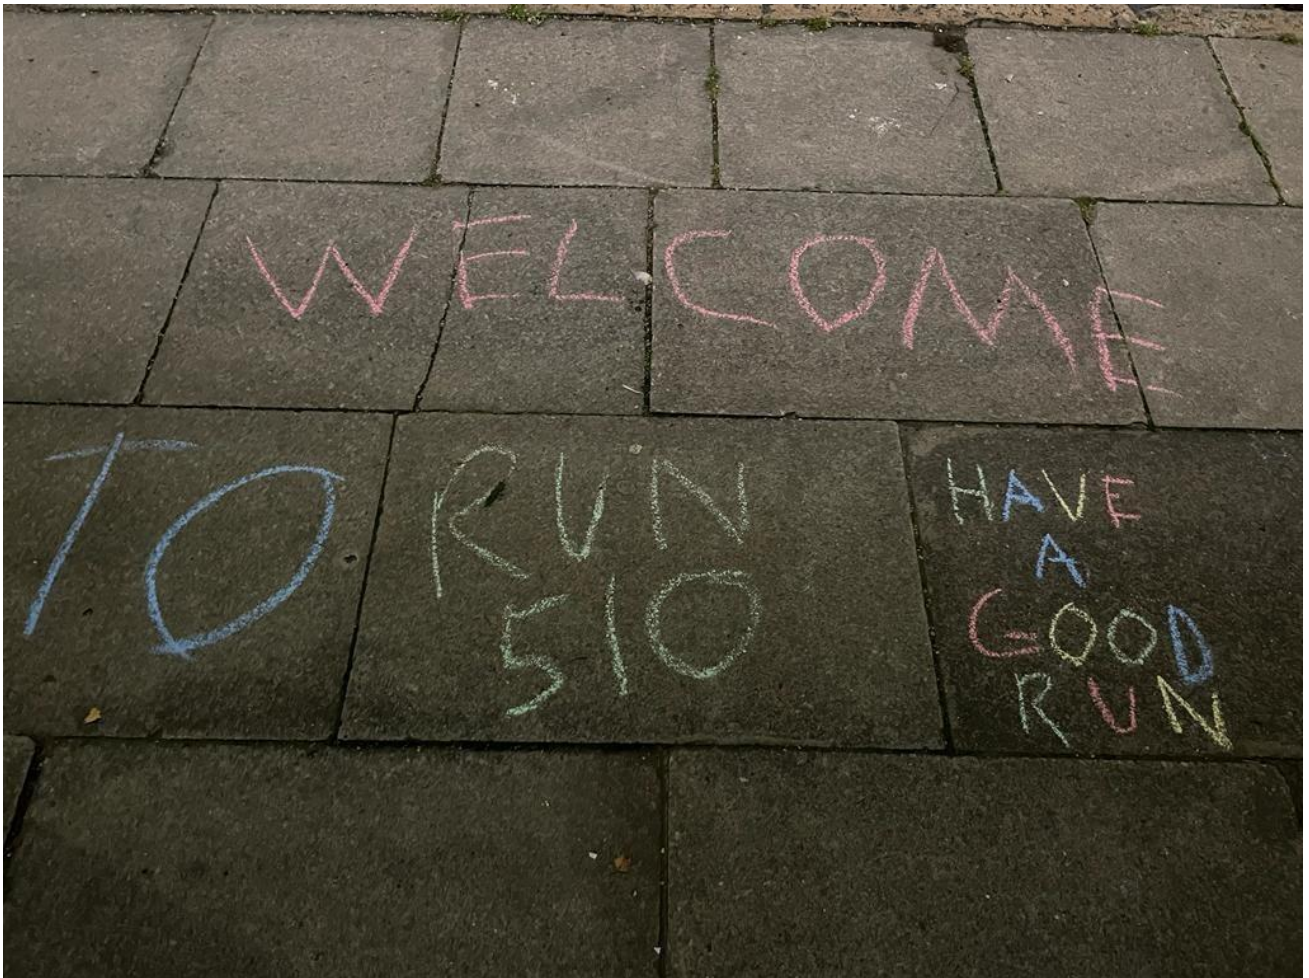 WELCOME
TO
RUN
510
HAVE
A
GOOD
RUN